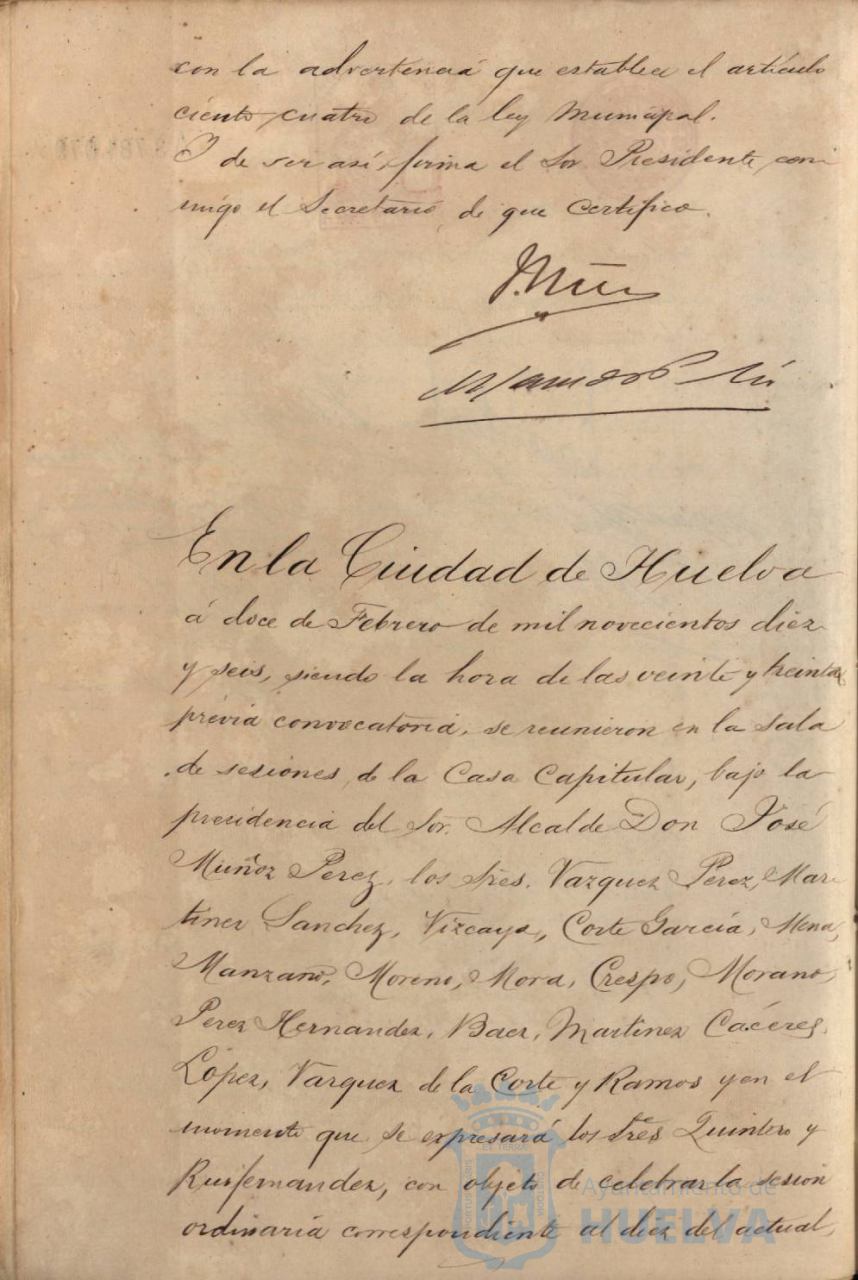 con la advertencia que establece el artículo
ciento cuatro de la ley Municipal.
Y de ser así, firma el Sor Presidente con
migo el Secretario de que certifico.
En la Ciudad de Huelva
á doce de Febrero de mil novecientos diez
y seis, siendo la hora de las veinte y treinta
prévia convocatoria, se reunieron en la sala
de sesiones de la Casa Capitular, bajo la
presidencia del Sor. Alcalde Don José
Muñoz Perez, los Sres. Vazquez Perez, Mar
tinez Sanchez, Vizcaya, Corte García, Mena,
Manzano, Moreno, Mora, Crespo, Morano,
Perez Hernandez, Baez, Martinez Cáceres,
López, Vazquez de la Corte y Ramos y en el
momento que se expresará los Sres Quintero y
Ruifernandez, con objeto de celebrar la sesion
ordinaria correspondiente al diez del actual,
Ayuntamiento de
HUELVA